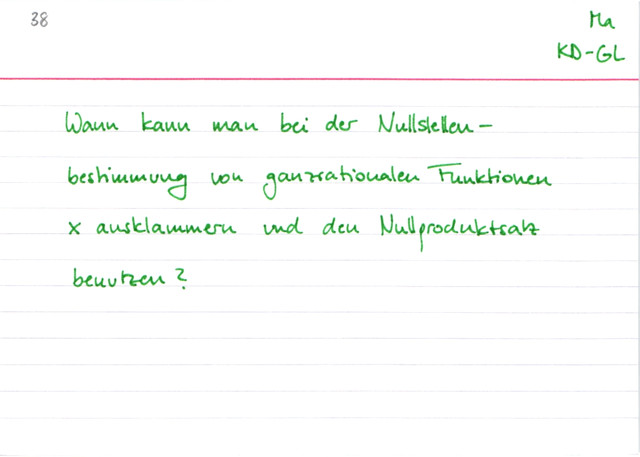 38
Ma
KD-GL
Wann kann man bei der Nullstellen-
bestimmung von ganzrationalen Funktionen
x ausklammern und den Nullproduktsatz
benutzen?